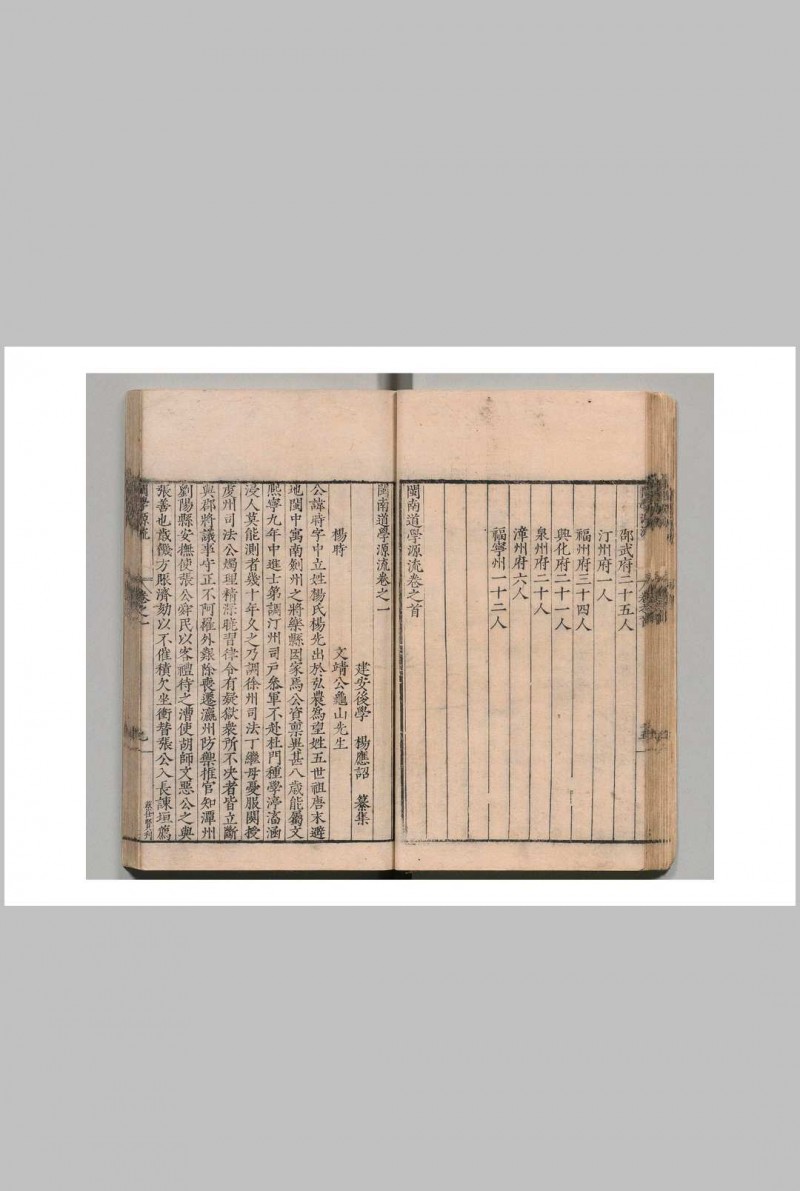 邵武府二十五人
汀州府一人
福州府三十四人
興化府二十一人
泉州府二十人
漳州府六人
福寧州一十二人
閩南道學源流卷之首
閩南道學源流卷之一
建安後學 楊應詔 纂集
楊時 文靖公龜山先生
公諱時字中立姓楊氏楊先出於弘農為望姓五世祖唐末避
地閩中寓南劍州之將樂縣因家焉公資稟異甚八歲能屬文
熙寧九年中進士第調汀州司戶參軍不赴杜門種學渟滀涵
浸人莫能測者幾十年久之乃調徐州司法丁繼母憂服闋授
虔州司法公燭理精深曉習律令有疑獄衆所不决者皆立斷
與郡將議事守正不阿罹外艱除喪遷瀛州防禦推官知潭州
劉陽縣安撫使張公舜民以客禮待之漕使胡師文惡公之與
張善也歲饑方賑濟劾以不催積欠坐衝替張公入長諫垣薦
閩學源流
卷之一